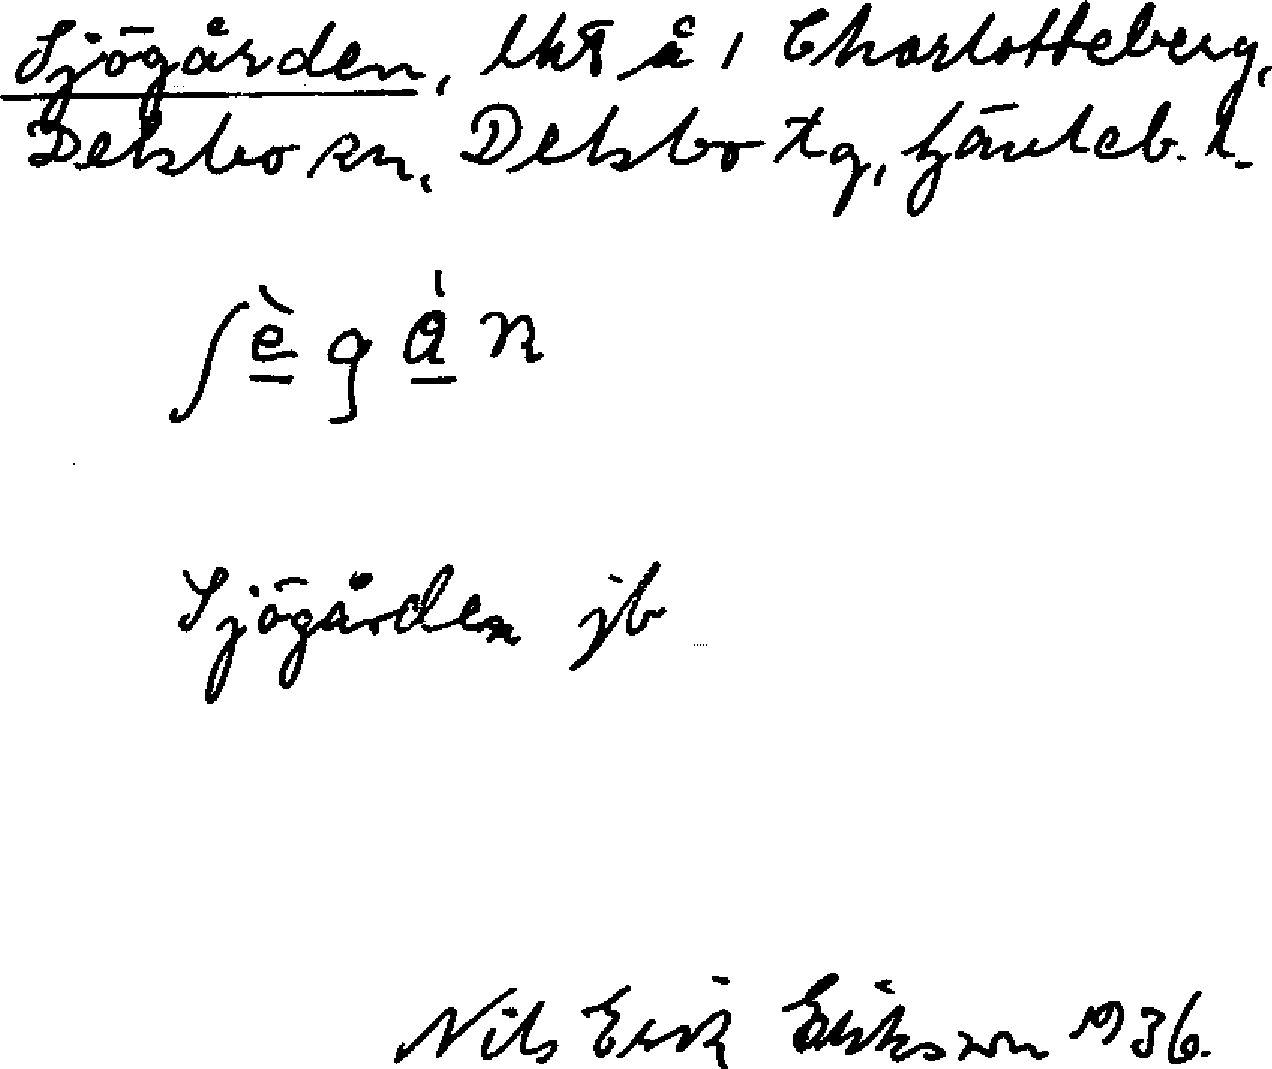 Sjögården, lht å 1 Charlotteberg,
Delsbo sn, Delsbo tg, Gävleb. l.
ʃ è g å n
Sjögården jb
Nils Erik Eriksson 1936.